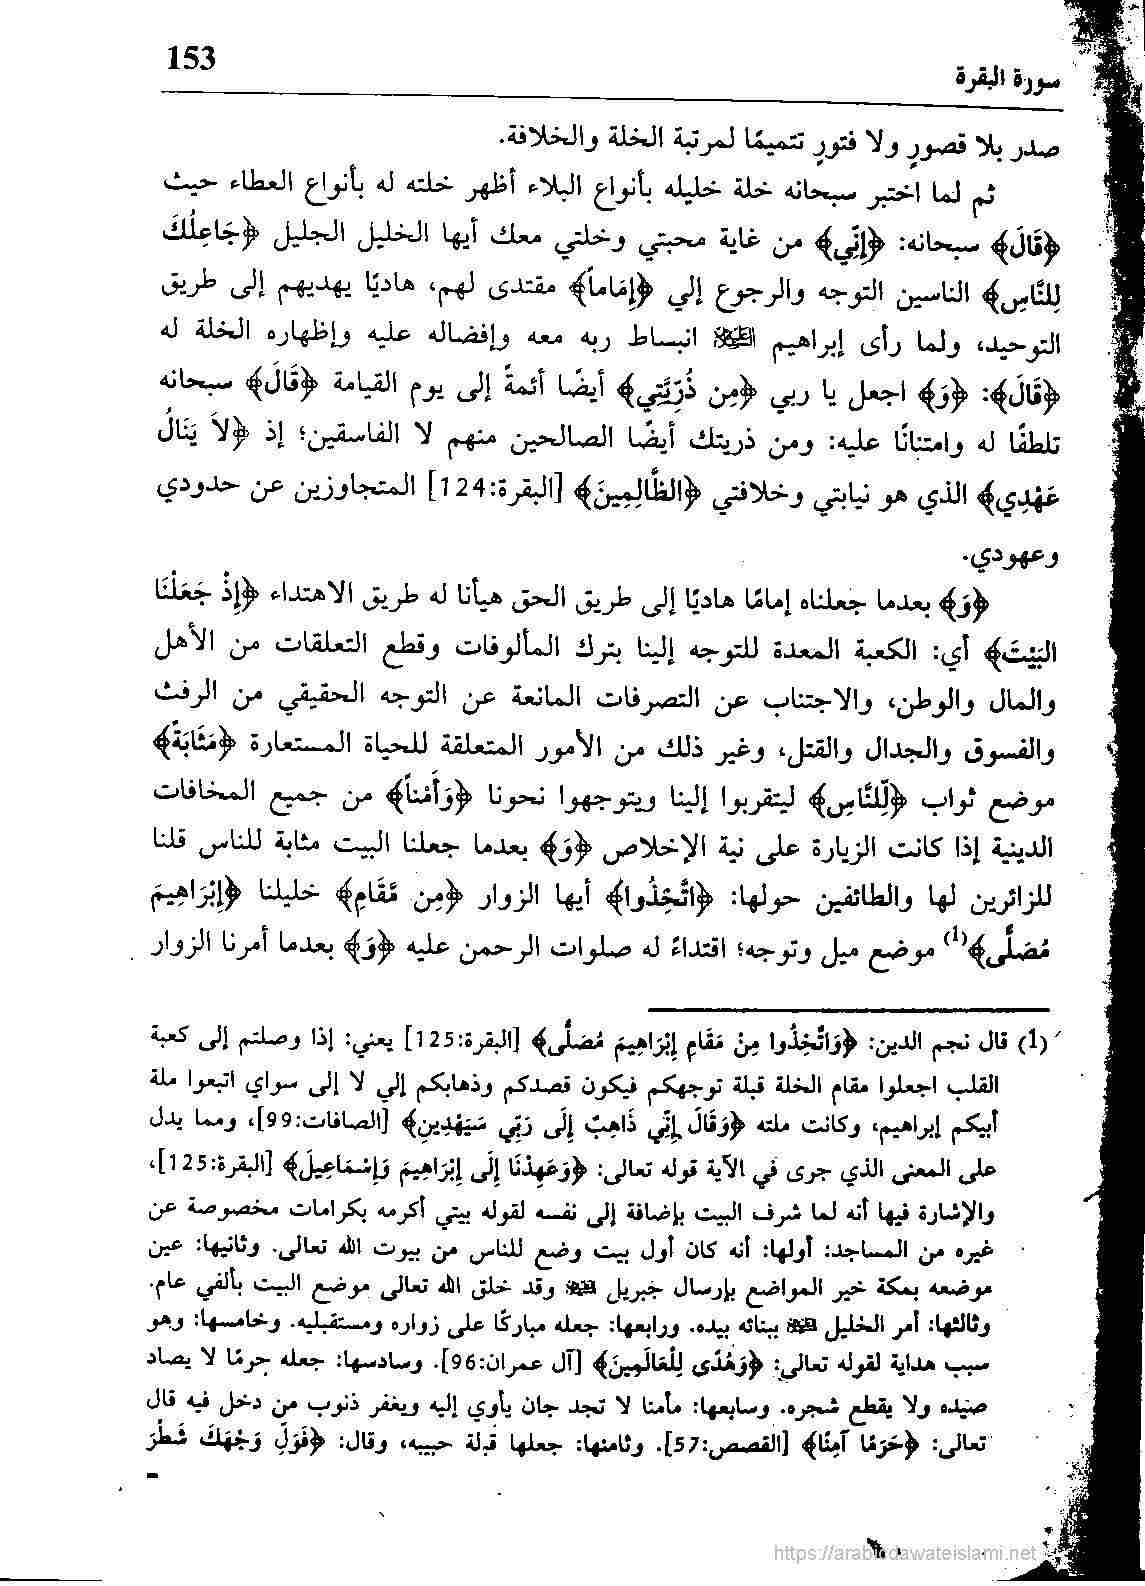 153
سورة البقرة
صدر بلا قصورٍ ولا فتورٍ تتميمًا لمرتبة الخلة والخلافة.
ثم لما اختبر سبحانه خلة خليله بأنواع البلاء أظهر خلته له بأنواع العطاء حيث
﴿قَالَ﴾ سبحانه: ﴿إِنِّي﴾ من غاية محبتي وخلتي معك أيها الخليل الجليل ﴿جَاعِلُكَ
لِلنَّاسِ﴾ الناسين التوجه والرجوع إلي ﴿إِمَاماً﴾ مقتدى لهم، هاديًا يهديهم إلى طريق
التوحيد، ولما رأى إبراهيم الظّيّلا انبساط ربه معه وإفضاله عليه وإظهاره الخلة له
﴿قَالَ﴾: ﴿وَ﴾ اجعل يا ربي ﴿مِن ذُرِّيَّتِي﴾ أيضًا أئمةً إلى يوم القيامة ﴿قَالَ﴾ سبحانه
تلطفًا له وامتنانًا عليه: ومن ذريتك أيضًا الصالحين منهم لا الفاسقين؛ إذ ﴿لاَ يَنَالُ
عَهْدِي﴾ الذي هو نيابتي وخلافتي ﴿الظَّالِمِينَ﴾ [البقرة:124] المتجاوزين عن حدودي
وعهودي.
﴿وَ﴾ بعدما جعلناه إمامًا هاديًا إلى طريق الحق هيأنا له طريق الاهتداء ﴿إِذْ جَعَلْنَا
البَيْتَ﴾ أي: الكعبة المعدة للتوجه إلينا بترك المألوفات وقطع التعلقات من الأهل
والمال والوطن، والاجتناب عن التصرفات المانعة عن التوجه الحقيقي من الرفث
والفسوق والجدال والقتل، وغير ذلك من الأمور المتعلقة للحياة المستعارة ﴿مَثَابَةً﴾
موضع ثواب ﴿لِّلنَّاسِ﴾ ليتقربوا إلينا ويتوجهوا نحونا ﴿وَأَمْناً﴾ من جميع المخافات
الدينية إذا كانت الزيارة على نية الإخلاص ﴿وَ﴾ بعدما جعلنا البيت مثابة للناس قلنا
للزائرين لها والطائفين حولها: ﴿اتَّخِذُوا﴾ أيها الزوار ﴿مِن مَّقَامِ﴾ خليلنا ﴿إِبْرَاهِيمَ
مُصَلًّى﴾(1) موضع ميل وتوجه؛ اقتداءً له صلوات الرحمن عليه ﴿وَ﴾ بعدما أمرنا الزوار
(1) قال نجم الدين: ﴿وَاتَّخِذُوا مِنْ مَقَامِ إِبْرَاهِيمَ مُصَلًّى﴾ [البقرة:125] يعني: إذا وصلتم إلى كعبة
القلب اجعلوا مقام الخلة قبلة توجهكم فيكون قصدكم وذهابكم إلي لا إلى سواي اتبعوا ملة
أبيكم إبراهيم، وكانت ملته ﴿وَقَالَ إِنِّي ذَاهِبٌ إِلَى رَبِّي سَيَهْدِينِ﴾ [الصافات:99]، ومما يدل
على المعنى الذي جرى في الآية قوله تعالى: ﴿وَعَهِدْنَا إِلَى إِبْرَاهِيمَ وَإِسْمَاعِيلَ﴾ [البقرة:125]،
والإشارة فيها أنه لما شرف البيت بإضافة إلى نفسه لقوله بيتي أكرمه بكرامات مخصوصة عن
غيره من المساجد: أولها: أنه كان أول بيت وضع للناس من بيوت الله تعالى. وثانيها: عين
موضعه بمكة خير المواضع بإرسال جبريل وقد خلق الله تعالى موضع البيت بألفي عام.
وثالثها: أمر الخليل ببنائه بيده. ورابعها: جعله مباركًا على زواره ومستقبليه. وخامسها: وهو
سبب هداية لقوله تعالى: ﴿وَهُدًى لِلْعَالَمِينَ﴾ [آل عمران:96]. وسادسها: جعله حرمًا لا يصاد
صيده ولا يقطع شجره. وسابعها: مأمنا لا تجد جان يأوي إليه ويغفر ذنوب من دخل فيه قال
تعالى: ﴿حَرَمًا آمِنًا﴾ [القصص:57]. وثامنها: جعلها قبلة حبيبه، وقال: ﴿فَوَلِّ وَجْهَكَ شَطْرَ
https://arabicdawateislami.net